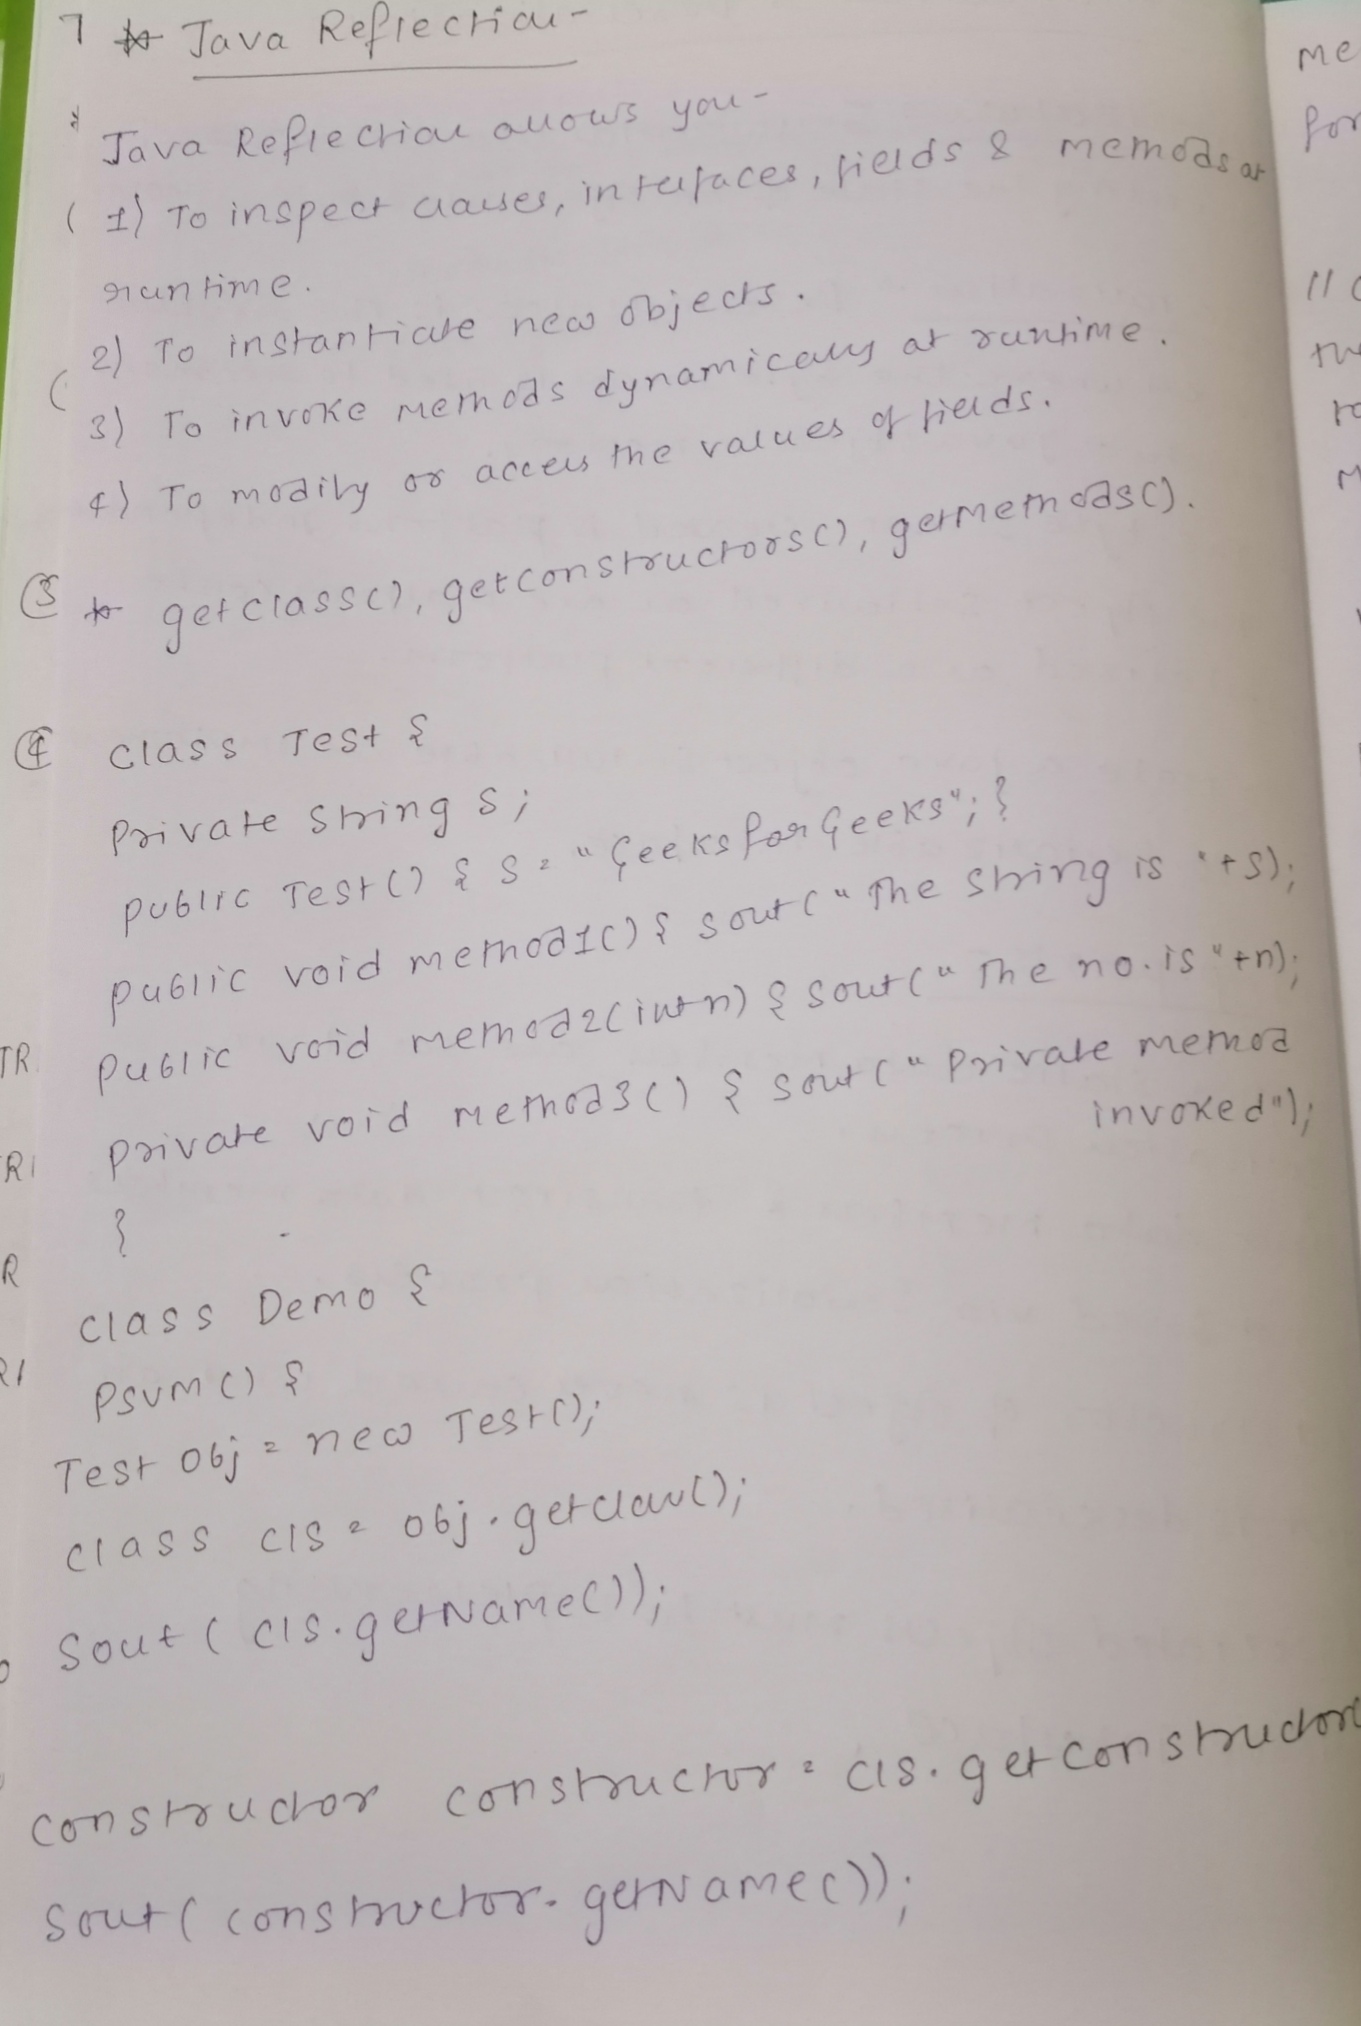 7 * Java Reflection-
* Java Reflection allows you-
( 1) To inspect classes, interfaces, fields & methods at
runtime.
( 2) To instantiate new objects.
3) To invoke methods dynamically at runtime.
4) To modify or access the values of fields.
③ * getclass(), getconstructors(), getmethods().
④ class Test {
Private String s;
Public Test() { s = "GeeksforGeeks"; }
Public void method1() { sout("The string is "+s);
Public void method2(int n) { sout("The no. is "+n);
Private void method3() { sout("Private method
invoked");
}
class Demo {
Psvm() {
Test obj = new Test();
class cls = obj.getclass();
Sout(cls.getName());
constructor constructor = cls.getconstructor
Sout(constructor.getName());
me
for
// 
TR
RI
R
RI